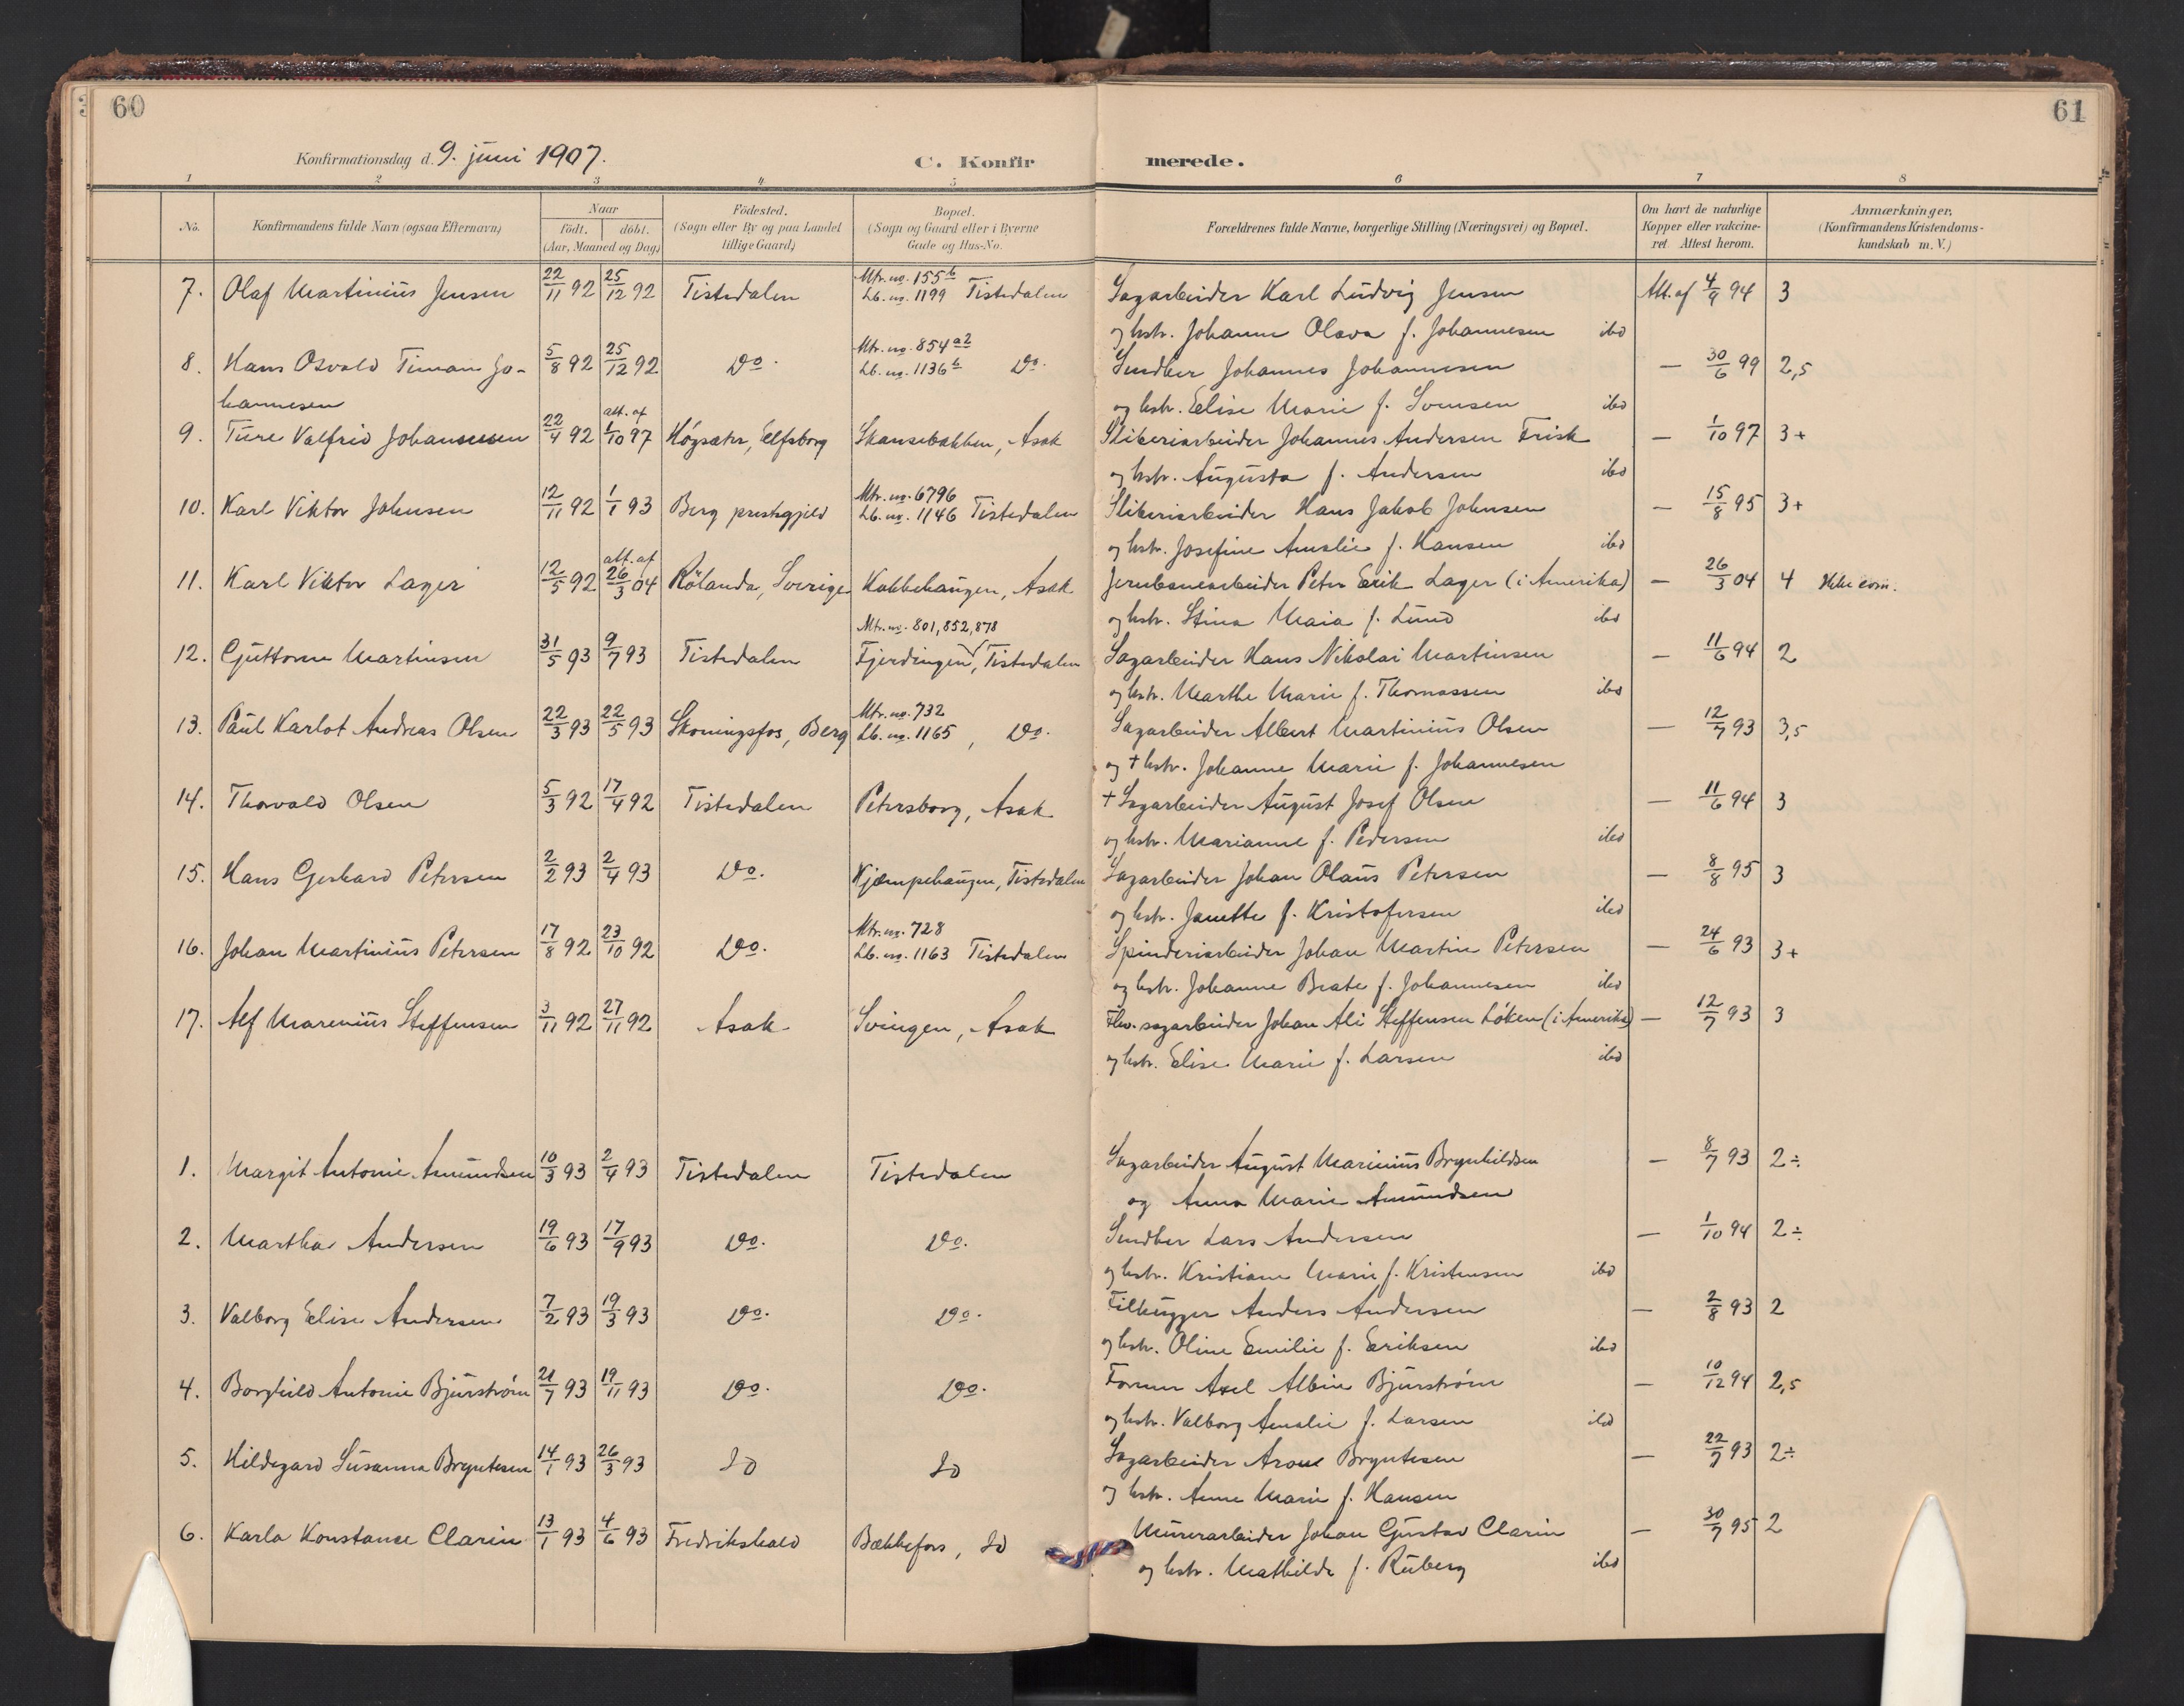 60
61
Konfirmationsdag d. 9. juni 1907.
C. Konfirmerede.
1 2 3 4 5 6 7 8
No. Konfirmandens fulde Navn (ogsaa Efternavn) Naar födt. döbt. (Aar, Maaned og Dag) Födested. (Sogn eller By og paa Landet tillige Gaard) Bopæl. (Sogn og Gaard eller i Byerne Gade og Hus-No. Forældrenes fulde Navne, borgerlige Stilling (Næringsvei) og Bopæl. Om havt de naturlige Kopper eller vakcineret Attest herom. Anmærkninger, (Konfirmandens Kristendomskundskab m. V.)
Mtr. no. 155 b
7. Olaf Martinius Jensen 22/11 92 25/12 92 Tistedalen Lb. no. 1199 Tistedalen Sagarbeider Karl Ludvig Jensen Att. af 4/9 94 3
og hstr. Johanne Olava f. Johannesen ibd
Mtr. no. 854 a2
8. Hans Osvald Timan Jo- 5/8 92 25/12 92 Do. Lb. no. 1136 b Do. Snedker Johannes Johannesen — 30/6 99 2,5
hannesen og hstr. Elise Marie f. Svensen ibd
att. af
9. Ture Valfrid Johannesen 22/4 92 1/10 97 Högsäter, Elfsborg Skansebakken, Asak Sliberiarbeider Johannes Andersen Frisk — 1/10 97 3+
og hstr. Augusta f. Andersen ibd
Mtr. no. 6796
10. Karl Viktor Johnsen 12/11 92 1/1 93 Berg prestegjeld Lb. no. 1146 Tistedalen Sliberiarbeider Hans Jakob Johnsen — 15/8 95 3+
og hstr. Josefine Amalie f. Hansen ibd
att. af
11. Karl Viktor Lager 12/5 92 26/3 04 Rölanda, Sverige Kakkehaugen, Asak Jernbanearbeider Peter Erik Lager (i Amerika) — 26/3 04 4 Ikke com.
og hstr. Stina Maia f. Lund ibd
Mtr. no. 801, 852, 878
12. Guttorm Martinsen 31/5 93 9/7 93 Tistedalen Fjerdingen, Tistedalen Sagarbeider Hans Nikolai Martinsen — 11/6 94 2
og hstr. Marthe Marie f. Thomassen ibd
Mtr. no. 732
13. Paul Karlot Andreas Olsen 22/3 93 22/5 93 Skoningsfos, Berg Lb. no. 1165, Do. Sagarbeider Albert Martinius Olsen — 12/7 93 3,5
og + hstr. Johanne Marie f. Johannesen
14. Thorvald Olsen 5/3 92 17/4 92 Tistedalen Petersborg, Asak + Sagarbeider August Josef Olsen — 11/6 94 3
og hstr. Marianne f. Pedersen ibd
15. Hans Gerhard Petersen 2/2 93 2/4 93 Do. Kjæmpehaugen, Tistedalen Sagarbeider Johan Olaus Petersen — 8/8 95 3
og hstr. Janette f. Kristofersen ibd
Mtr. no. 728
16. Johan Martinius Petersen 17/8 92 23/10 92 Do. Lb. no. 1163 Tistedalen Spinderiarbeider Johan Martin Petersen — 24/6 93 3+
og hstr. Johanne Beate f. Johannesen ibd
17. Alf Marenius Steffensen 3/11 92 27/11 92 Asak Svingen, Asak Fhv. sagarbeider Johan Ali Steffensen Löken (i Amerika) — 12/7 93 3
og hstr. Elise Marie f. Larsen ibd
1. Margit Antonie Amundsen 10/3 93 2/4 93 Tistedalen Tistedalen Sagarbeider August Marinius Brynhildsen — 8/7 93 2÷
og Anna Marie Amundsen
2. Martha Andersen 19/6 93 17/9 93 Do. Do. Snedker Lars Andersen — 1/10 94 2÷
og hstr. Kristiane Marie f. Kristensen ibd
3. Valborg Elise Andersen 7/2 93 19/3 93 Do. Do. Filhugger Anders Andersen — 2/8 93 2
og hstr. Oline Emilie f. Eriksen ibd
4. Borghild Antonie Bjurström 21/7 93 19/11 93 Do. Do. Former Axel Albin Bjurström — 10/12 94 2,5
og hstr. Valborg Amalie f. Larsen ibd
5. Hildegard Susanna Bryntesen 14/1 93 26/3 93 Do Do Sagarbeider Aron Bryntesen — 22/7 93 2÷
og hstr. Anne Marie f. Hansen
6. Karla Konstanse Clarin 13/1 93 4/6 93 Fredrikshald Bækkefors, Do Murerarbeider Johan Gustav Clarin — 30/7 95 2
og hstr. Mathilde f. Ruberg ibd